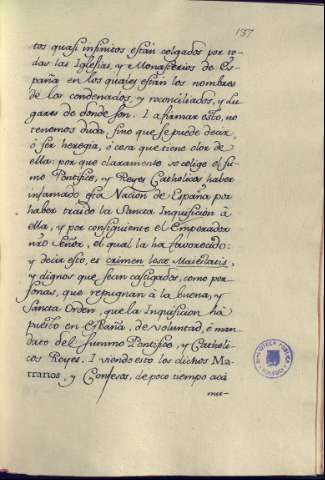 157
tos quasi infinitos están colgados por to-
das las Iglesias, y Monasterios de Es-
paña en los quales están los nombres
de los condenados, y reconciliados, y Lu-
gares de donde son. I afirmar esto, no
tenemos duda, sino que se puede decir,
ó ser heregia, ó cosa que tiene olor de
ella: por que claramente se colige el Su-
mo Pontifice, y Reyes Catholicos haber
infamado esta Nacion de España por
haber traido la Sancta Inquisicion á
ella, y por consiguiente el Emperador
nrõ Señor, el qual la ha favorecido:
y decir esto, es crimen lesæ Maiestatis,
y dignos que sean castigados, como per-
sonas, que repugnan á la buena, y
Sancta Orden, que la Inquisicion ha
puesto en España, de voluntad, ó man-
dato del Summo Pontifice, y Catholi-
cos Reyes. I viendo esto los dichos Ma-
rranos, y Confesos, de poco tiempo acá
mu-
BIBLIOTECA PUBLICA
TOLEDO